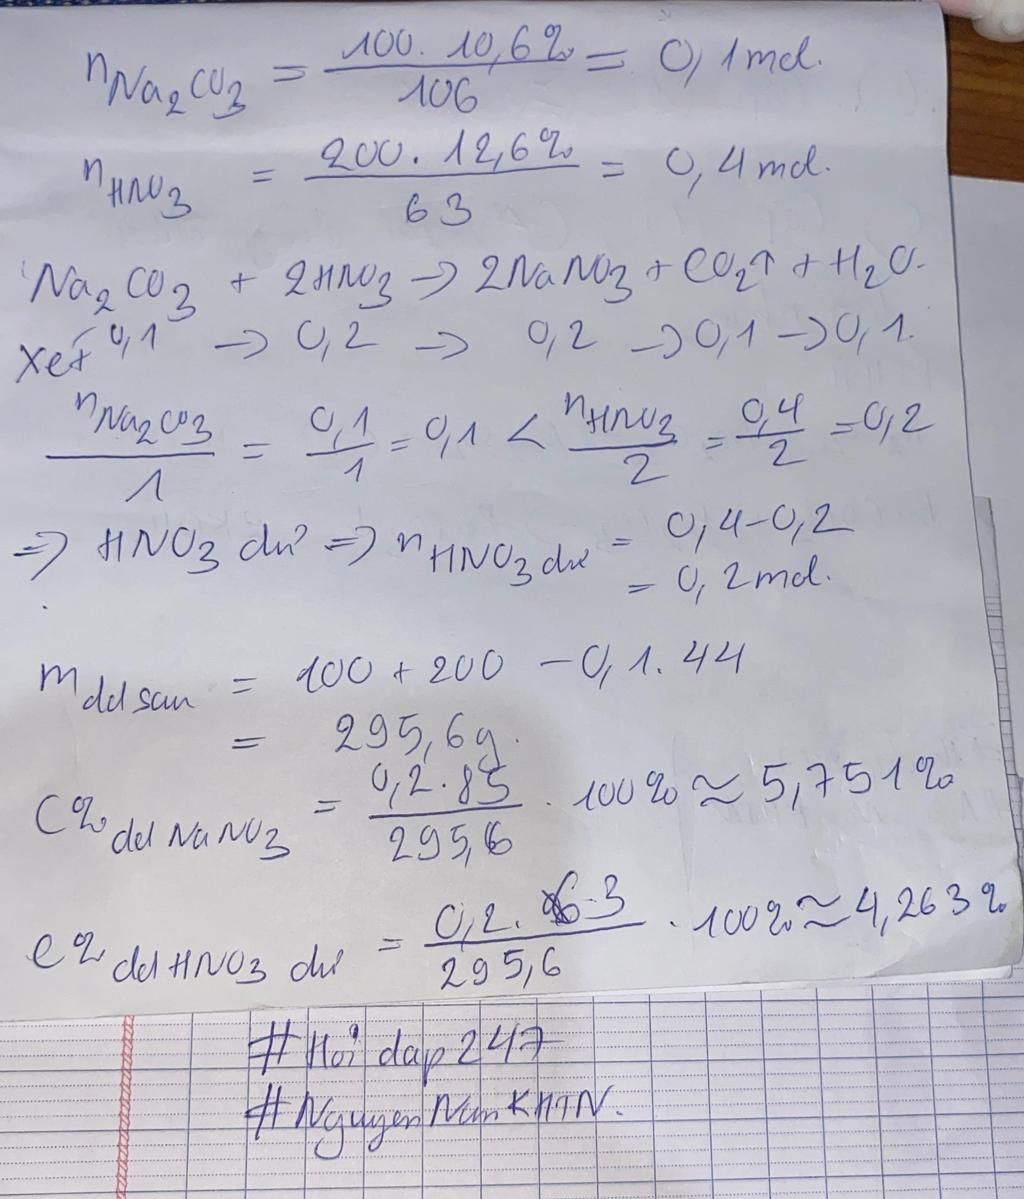 nNa2CO3 = 100. 10,6% / 106 = 0,1 mol.
nHNO3 = 200. 12,6% / 63 = 0,4 mol.
Na2CO3 + 2HNO3 → 2NaNO3 + CO2↑ + H2O.
0,1 → 0,2 → 0,2 → 0,1 → 0,1.
Xét
nNa2CO3 / 1 = 0,1 / 1 = 0,1 < nHNO3 / 2 = 0,4 / 2 = 0,2
=> HNO3 dư => nHNO3 dư = 0,4-0,2
= 0,2 mol.
mdd sau = 100 + 200 - 0,1. 44
= 295,6g.
C% dd NaNO3 = 0,2. 85 / 295,6 . 100% ≈ 5,751%
C% dd HNO3 dư = 0,2. 63 / 295,6 . 100% ≈ 4,263%
#Hoi dap 247
#Nguyen Nam KHTN.